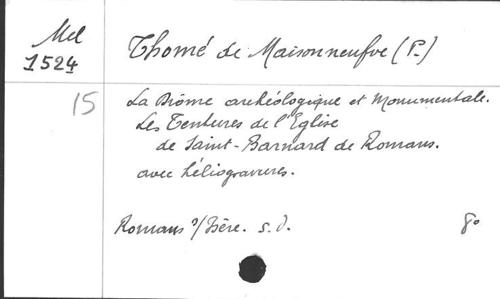 Mel
1524
Thomé de Maisonneufve (P.)
15
La Drôme archéologique et Monumentale.
Les Tentures de l'Eglise
de Saint-Barnard de Romans.
avec héliogravures.
Romans s/Isère. s.d.
8o